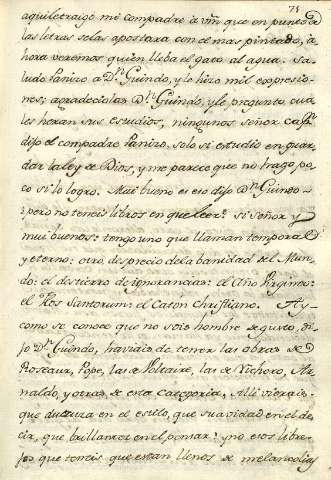 75
aqui le traigo mi compadre à vm̃ que en punto à
las letras se las apostara con el mas pintado, à
hora veremos quien lleba el gato al agua. Sa-
ludo Panizo a Dⁿ Guindo, y le hizo mil expresio-
nes; agradeciolas Dⁿ Guindo, y le pregunto cua
les heran sus estudios, ningunos señor
dijo el compadre Panizo. Solo si estudio en guar-
dar la ley de Dios, y me parece que no hago po-
co si lo logro. Mui bueno es eso dijo Dⁿ Guindo
pero no teneis libros en que leer? si señor y
mui buenos: tengo uno que llaman temporal
y eterno: otro desprecio de la banidad del Mun-
do: el destierro de ignorancias: el Año Virgineo:
el Flos Santorum: el Caton Christiano. Ay
como se conoce que no sois hombre de gusto, di-
jo Dⁿ Guindo, haviais de tener las obras de
Roseaur, Pope, las de Voltaire, las de Vichoro, Ar-
naldo, y otras de esta categoria, Alli vierais
que dulzura en el estilo, que suavidad en el de
cir, que brillantez en el pensar! y no esos libre-
jos que teneis que estan llenos de melancolias